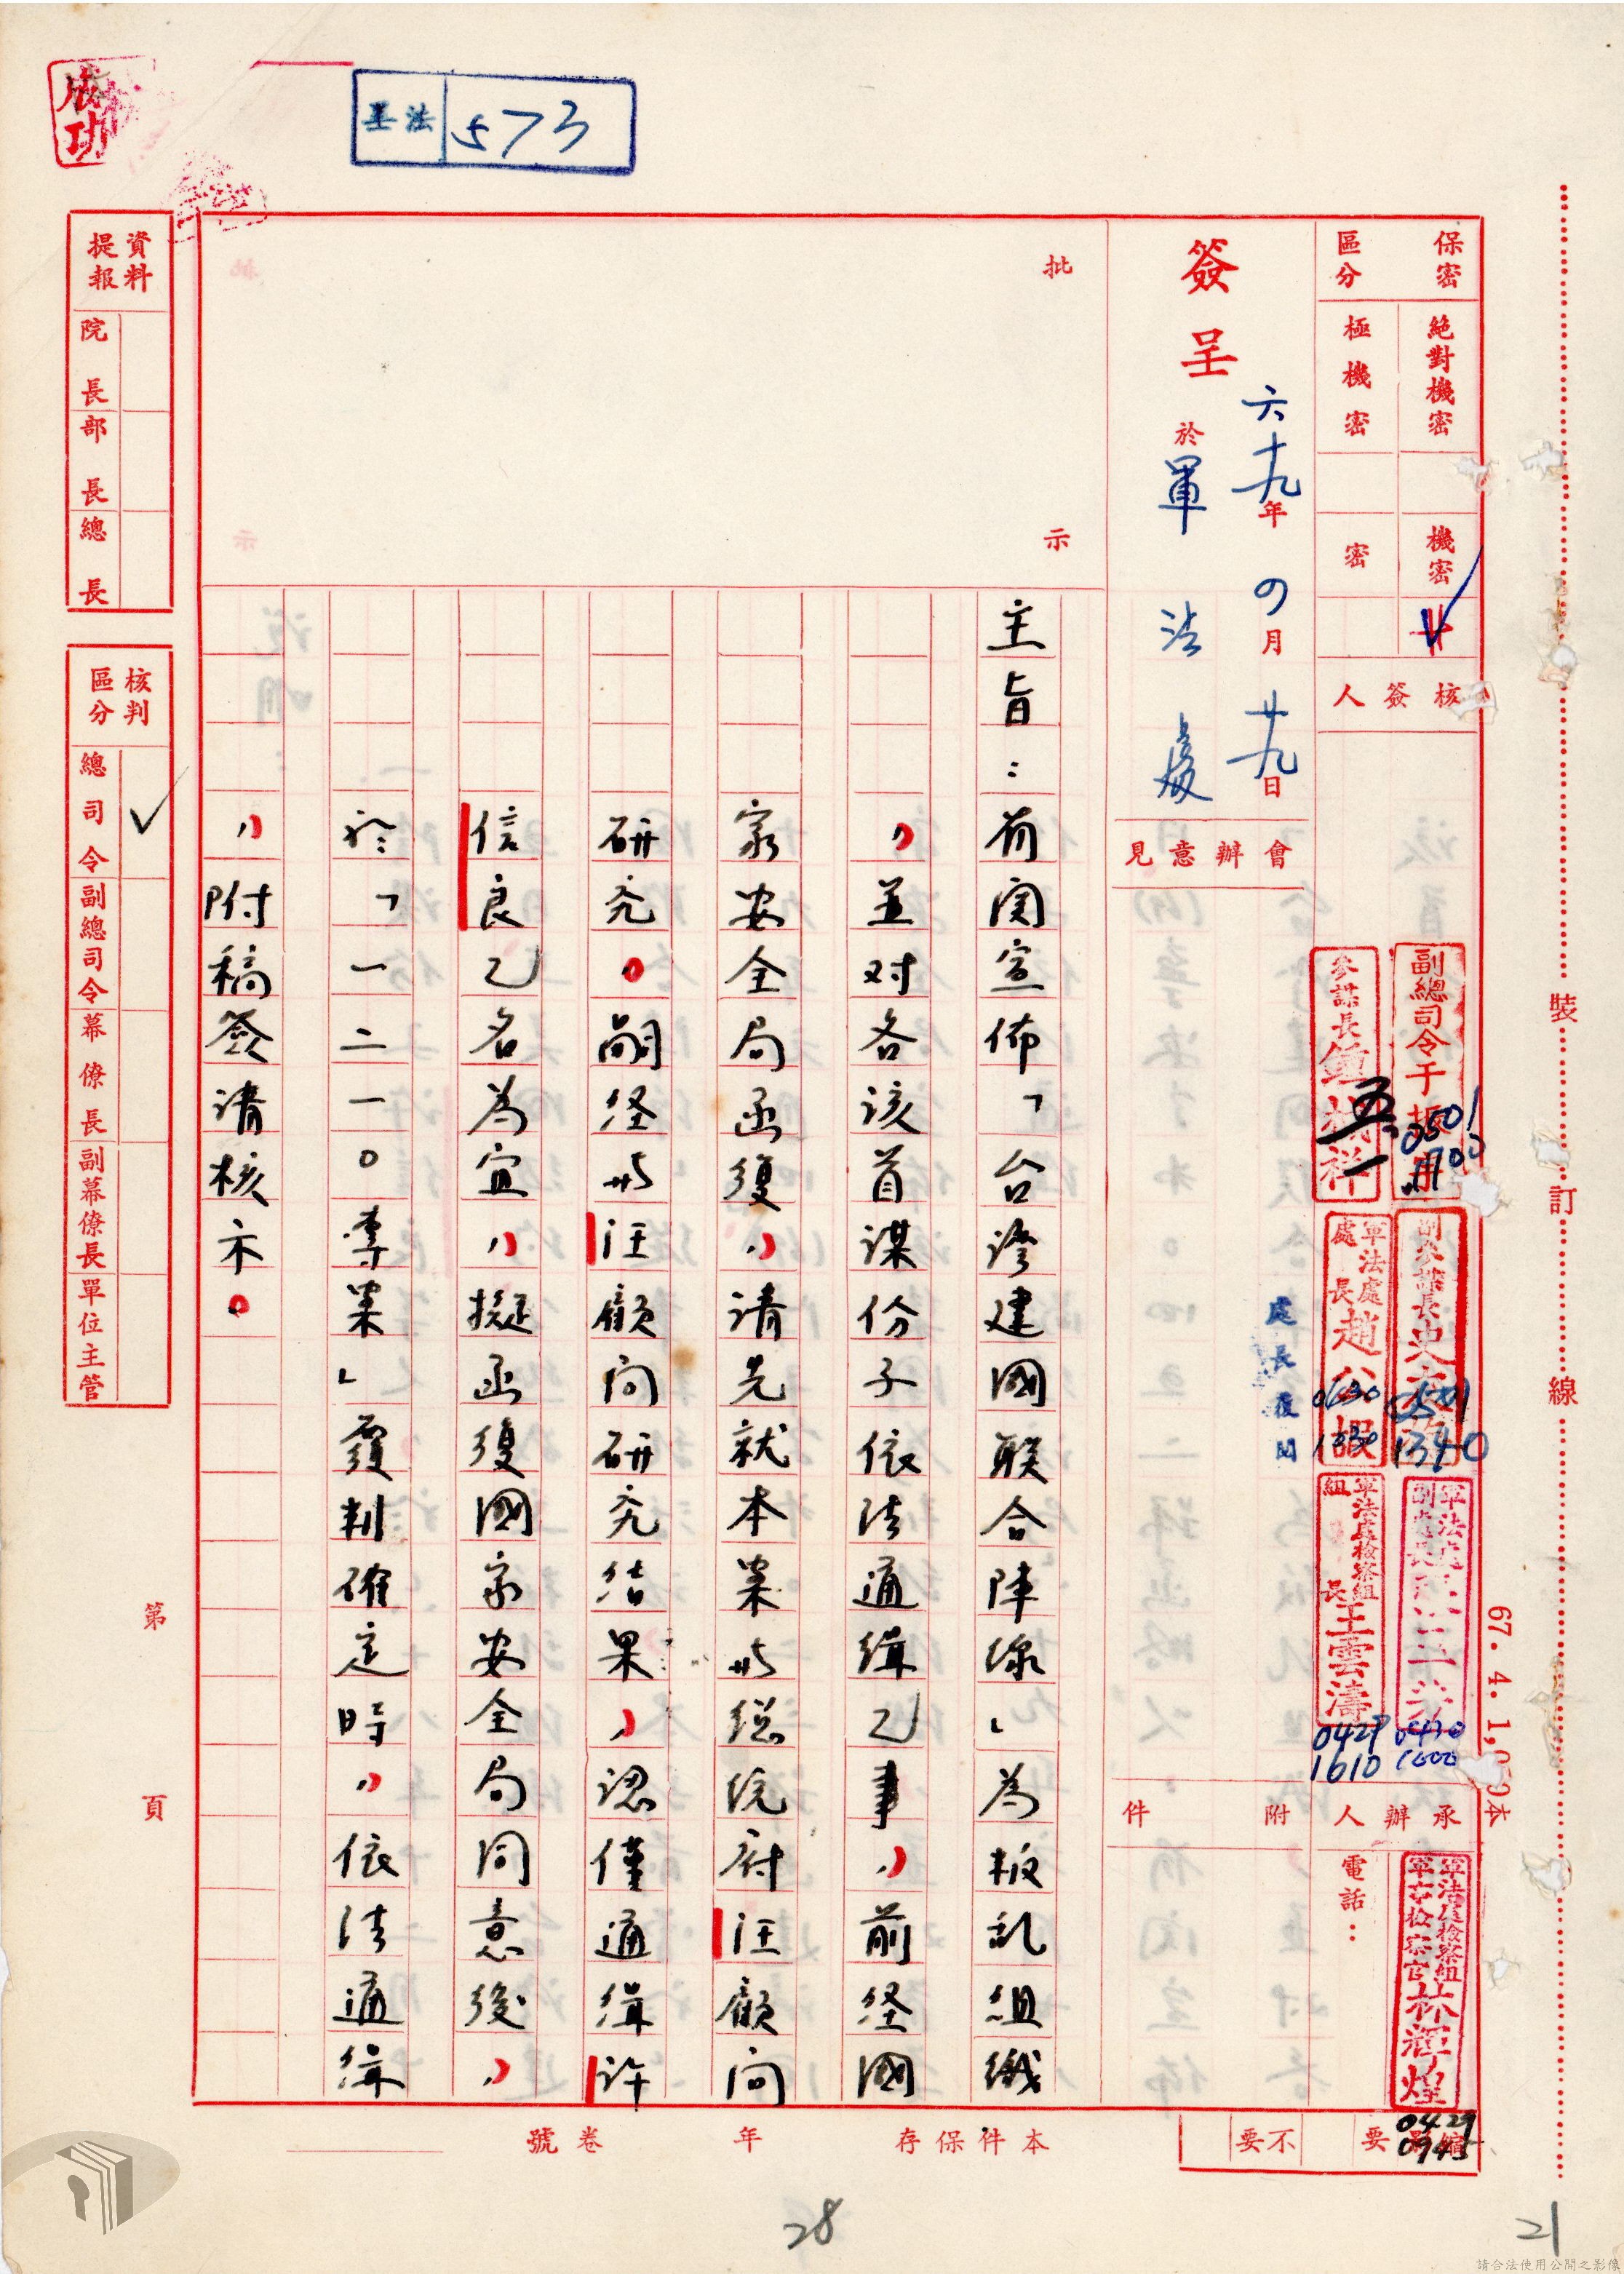 成功
法
573
保密區分
絕對機密
極機密
機密
密
核簽人
簽呈
六十九年四月廿九日
於軍法處
會辦意見
批示
主旨：前関宣佈「台湾建國联合陣線」為叛乱組織
，並对各該首謀份子依法通缉乙事，前経國
家安全局函復，請先就本案与総统府汪顧问
研究。嗣経与汪顧问研究結果，認僅通缉许
信良乙名為宜，擬函復國家安全局同意後，
於「一二一〇專案」覆判確定時，依法通缉
，附稿簽請核示。
副總司令于
0501
參謀長鍾
五一
副參謀長史
1340
軍法處處長趙公嘏
0430
1330
處長復閱
軍法處副處長
0430
1600
軍法處檢察組組長王雲濤
0429
1610
附件
承辦人
電話：
軍法處檢察組軍事檢察官林輝煌
0429
0945
要
不要
本件保存 年 卷 號
資料提報
院長
部長
總長
核判區分
總司令
副總司令
幕僚長
副幕僚長
單位主管
第 頁
裝訂線
67. 4. 1,0 0本
28
21
請合法使用公開之影像